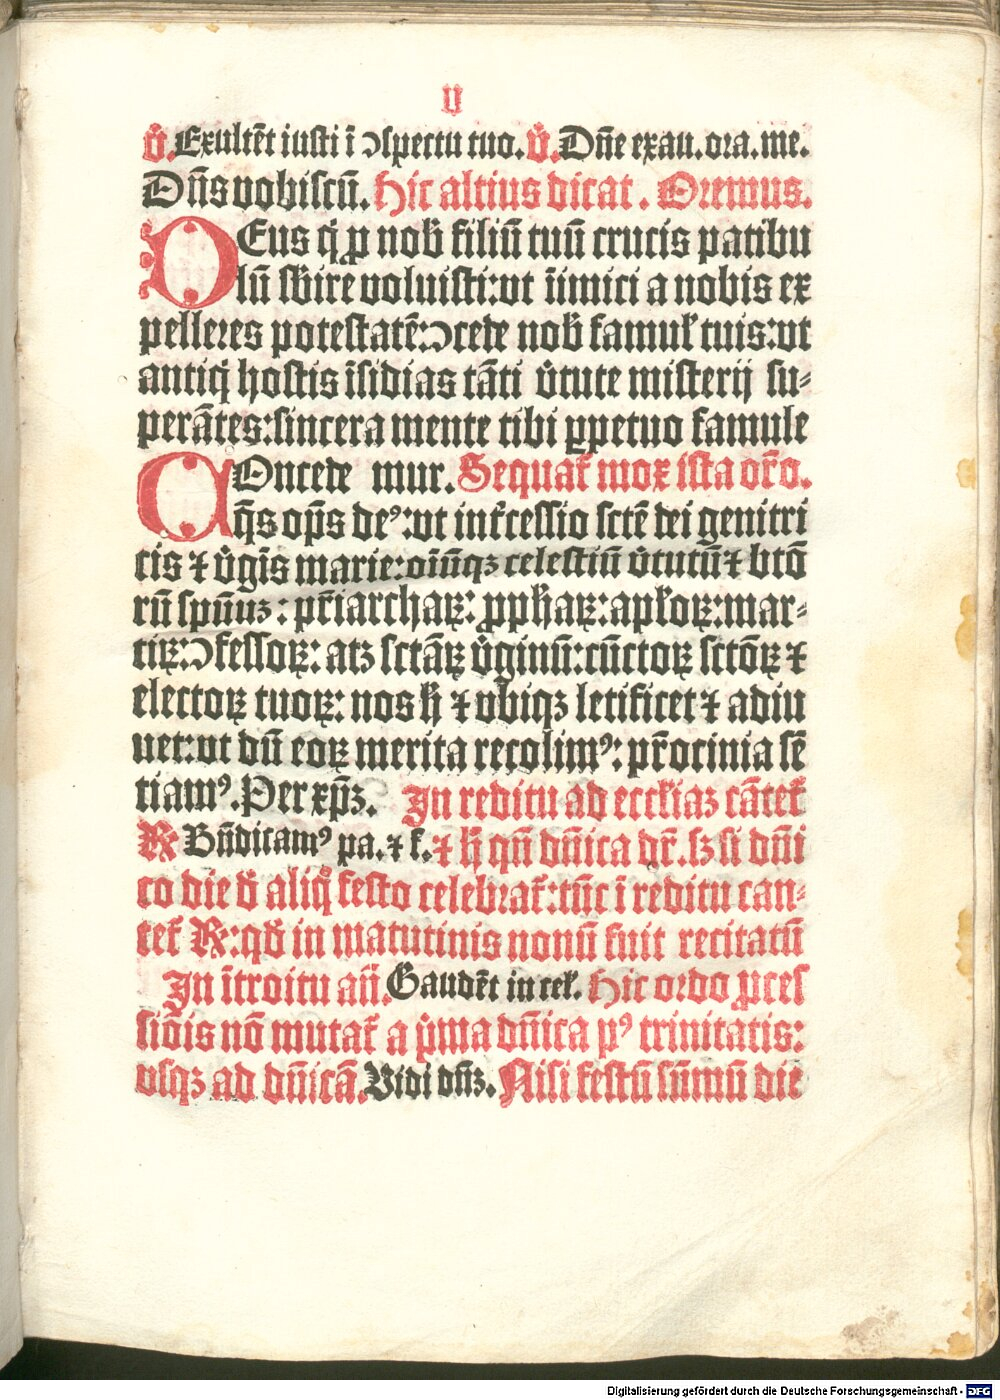 II
v̊. Exultēt iusti ī ꝯspectu tuo. v̊. Dn̄e exau. ora. me.
Dn̄s vobiscū. Hic altius dicat. Oremus.
DEus q̇ ꝓ nob̄ filiū tuū crucis patibu
lū sb̄ire voluisti: vt īimici a nobis ex
pelleres potestatē: ꝯcede nob̄ famul̓ tuis: vt
antiq̇ hostis īsidias tāti v̊tute misterij su⸗
perātes: sincera mente tibi ꝑpetuo famule
COncede mur. Sequat̓ mox ista or̄o.
q̄s op̄s deꝰ: vt int̓cessio sctē dei genitri
cis ⁊ v̊gīs marie: oīūqꝫ celestiū v̊tutū ⁊ btō
rū sp̄uūꝫ: pr̄iarchaꝝ: ꝓph̄aꝝ: apl̓oꝝ: mar⸗
tiꝝ: ꝯfessoꝝ: atꝫ sctāꝝ v̊ginū: cūctoꝝ sctōꝝ ⁊
electoꝝ tuoꝝ: nos h̄ ⁊ vbiqꝫ letificet ⁊ adiu
uet: vt dū eoꝝ merita recolimꝰ: pr̄ocinia sē
tiamꝰ. Per xp̄ꝫ. In reditu ad eccl̓iaꝫ cātet̓
℞ Bn̄dicamꝰ pa. ⁊ f. ⁊ h̄ qn̄ dn̄ica dr̄. sꝫ si dn̄i
co die d̄ aliq̊ festo celebrat̓: tūc ī reditu can⸗
tet̓ ℞: qd̄ in matutinis nonū fuit recitatū
In ītroitu an̄. Gaudēt in cel̓. Hic ordo ꝓces
siōis nō mutat̓ a p̓ma dn̄ica pꝰ trinitatis:
vsqꝫ ad dn̄icā. Vidi dn̄ꝫ. Nisi festū sūmū die
Digitalisierung gefördert durch die Deutsche Forschungsgemeinschaft - DFG